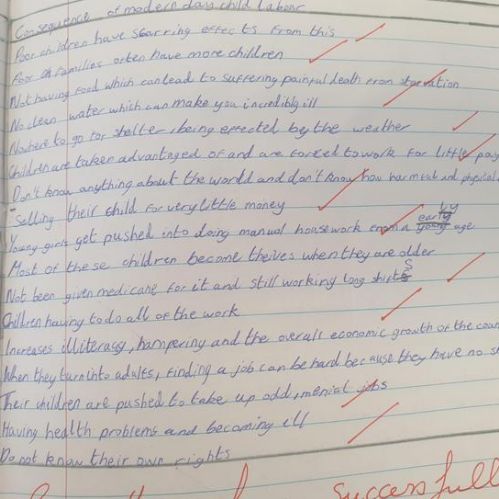 Consequence of modern day child labour
Poor children have scarring effects from this
Poor families often have more children
Not having food which can lead to suffering painful death from starvation
No clean water which can make you incredibly ill
Nowhere to go for shelter, being effected by the weather
Children are taken advantaged of and are forced to work for little pay
Don't know anything about the world and don't know how harmful and physical
Selling their child for very little money
Young girls get pushed into doing manual housework from a early age
Most of these children become theives when they are older
Not been given medicane for it and still working long shifts
Children having to do all of the work
Increases illiteracy, hampering and the overall economic growth of the coun
When they turn into adults, finding a job can be hard because they have no
Their children are pushed to take up odd, menial jobs
Having health problems and becoming ill
Do not know their own rights
successfull